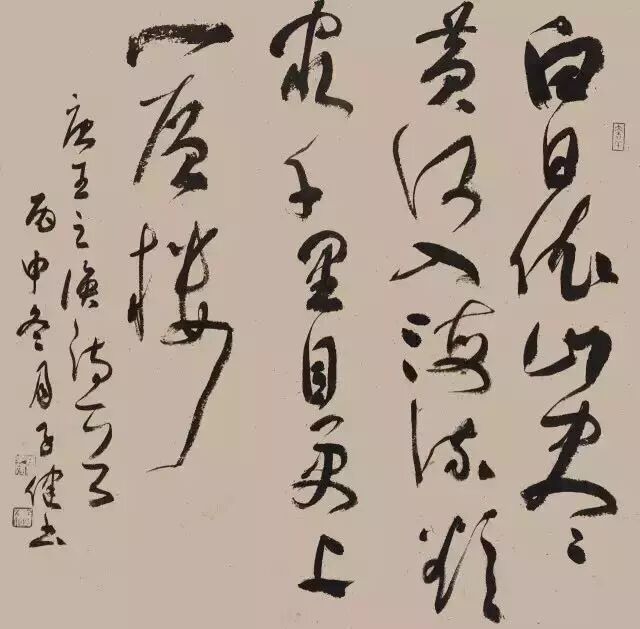 白日依山尽
黄河入海流欲
窮千里目更上
一層樓
唐王之涣诗一首
丙申冬月子健书